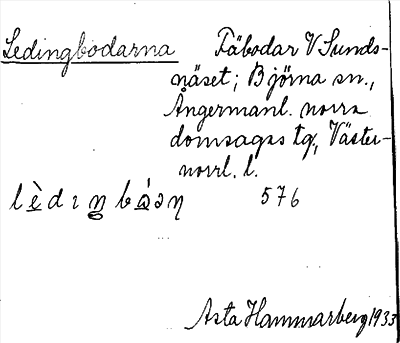 Ledingbodarna Fäbodar V Sunds-
näset; Björna sn.,
Ångermanl. norra
domsagas tg., Väster-
norrl. l.
576
Asta Hammarberg 1933